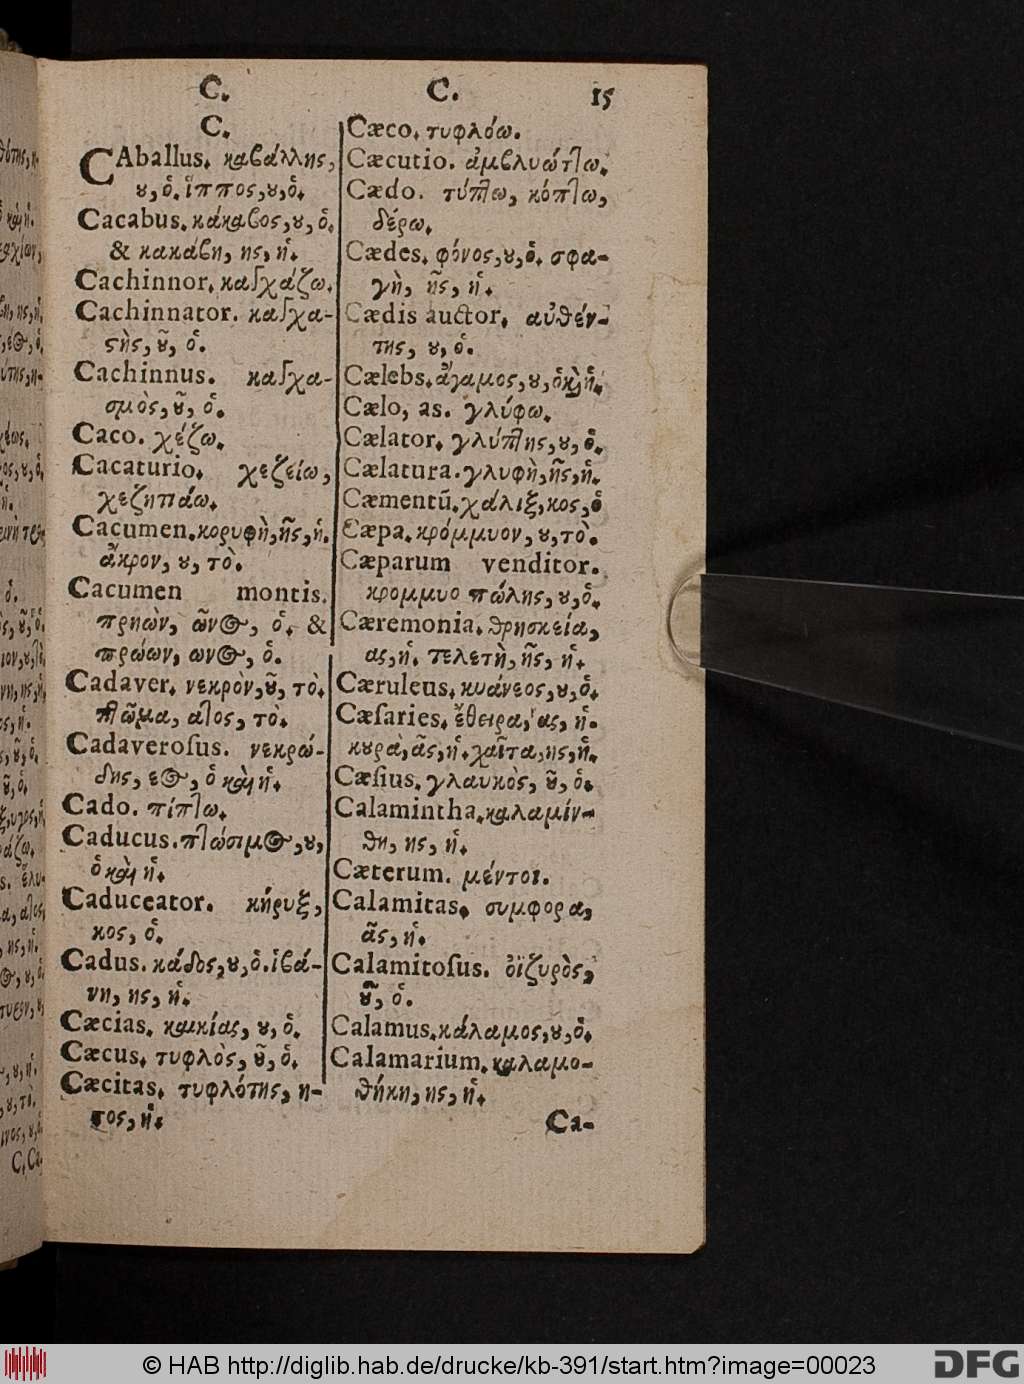 C.
C.
15
C.
CAballus. καβάλλης,
ου, ὁ. ἵππος, ου, ὁ.
Cacabus. κάκαβος, ου, ὁ.
& κακάβη, ης, ἡ.
Cachinnor. καγχάζω.
Cachinnator. καγχα-
στὴς, οῦ, ὁ.
Cachinnus. καγχα-
σμὸς, οῦ, ὁ.
Caco. χέζω.
Cacaturio. χεζείω,
χεζητιάω.
Cacumen. κορυφὴ, ῆς, ἡ.
ἄκρον, ου, τὸ.
Cacumen montis.
πρηὼν, ῶνος, ὁ. &
πρώων, ωνος, ὁ.
Cadaver. νεκρὸν, οῦ, τὸ.
πτῶμα, ατος, τὸ.
Cadaverosus. νεκρώ-
δης, εος, ὁ καὶ ἡ.
Cado. πίπτω.
Caducus. πτώσιμος, ου,
ὁ καὶ ἡ.
Caduceator. κήρυξ,
κος, ὁ.
Cadus. κάδος, ου, ὁ. ἰβά-
νη, ης, ἡ.
Cæcias. καικίας, ου, ὁ.
Cæcus. τυφλὸς, οῦ, ὁ.
Cæcitas. τυφλότης, η-
τος, ἡ.
Cæco. τυφλόω.
Cæcutio. ἀμβλυώττω.
Cædo. τύπτω, κόπτω,
δέρω.
Cædes. φόνος, ου, ὁ. σφα-
γὴ, ῆς, ἡ.
Cædis auctor. αὐθέν-
της, ου, ὁ.
Cælebs. ἄγαμος, ου, ὁ καὶ ἡ.
Cælo, as. γλύφω.
Cælator. γλύπτης, ου, ὁ.
Cælatura. γλυφὴ, ῆς, ἡ.
Cæmentū. χάλιξ, κος, ὁ
Cæpa. κρόμμυον, ου, τὸ.
Cæparum venditor.
κρομμυο πώλης, ου, ὁ.
Cæremonia. θρησκεία,
ας, ἡ. τελετὴ, ῆς, ἡ.
Cæruleus. κυάνεος, ου, ὁ.
Cæsaries. ἔθειρα, ας, ἡ.
κουρὰ, ᾶς, ἡ. χαῖτα, ης, ἡ.
Cæsius. γλαυκὸς, οῦ, ὁ.
Calamintha. καλαμίν-
θη, ης, ἡ.
Cæterum. μέντοι.
Calamitas. συμφορα,
ᾶς, ἡ.
Calamitosus. ὀϊζυρὸς,
οῦ, ὁ.
Calamus. κάλαμος, ου, ὁ.
Calamarium. καλαμο-
θήκη, ης, ἡ.
Ca-
© HAB http://diglib.hab.de/drucke/kb-391/start.htm?image=00023
DFG